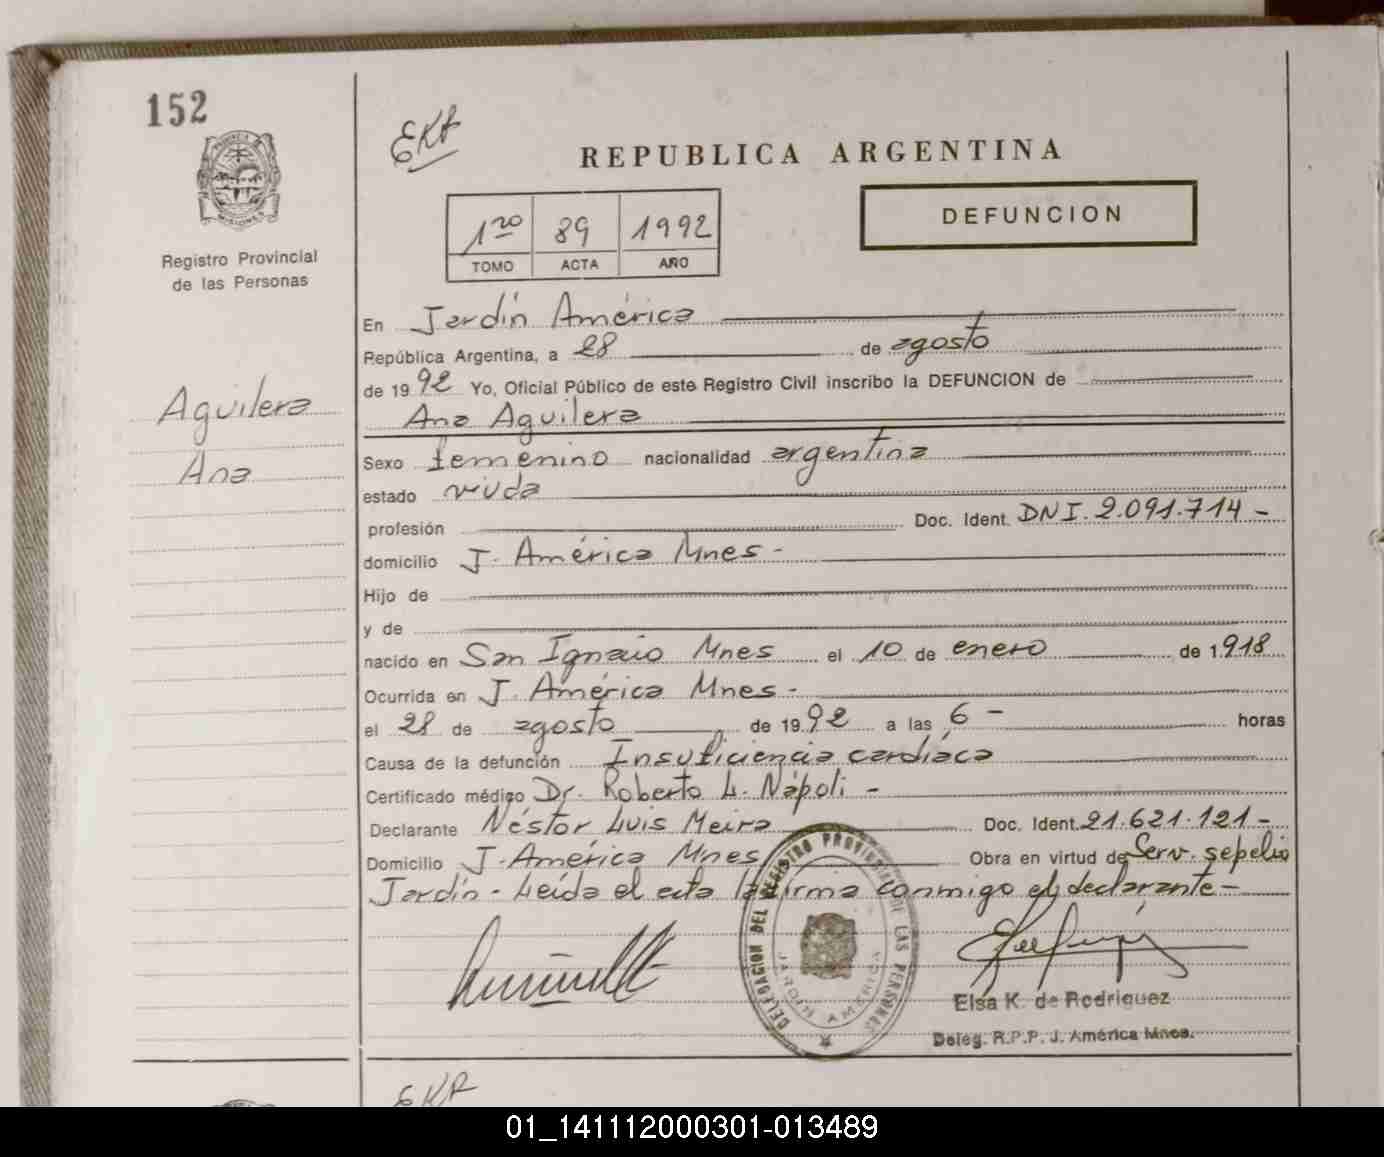 152
EKR
REPUBLICA ARGENTINA
PROVINCIA DE
MISIONES
1ro 89 1992
TOMO ACTA AÑO
DEFUNCION
Registro Provincial
de las Personas
En Jardín América
República Argentina, a 28 de agosto
de 1992 Yo, Oficial Público de este Registro Civil inscribo la DEFUNCION de
Ana Aguilera
Aguilera
Ana
Sexo femenino nacionalidad argentina
estado viuda
profesión Doc. Ident. DNI. 2.091.714-
domicilio J. América Mnes-
Hijo de
y de
nacido en San Ignacio Mnes el 10 de enero de 1.918
Ocurrida en J. América Mnes-
el 28 de agosto de 1992 a las 6- horas
Causa de la defunción Insuficiencia cardíaca
Certificado médico Dr. Roberto L. Nápoli-
Declarante Néstor Luis Meira Doc. Ident. 21.621.121-
Domicilio J. América Mnes Obra en virtud de Serv. sepelio
Jardín- Leída el acta la firma conmigo el declarante-
DELEGACION DEL REGISTRO PROVINCIAL DE LAS PERSONAS
JARDIN AMERICA
Elsa K. de Rodriguez
Deleg. R.P.P. J. América Mnes.
EKR
01_141112000301-013489